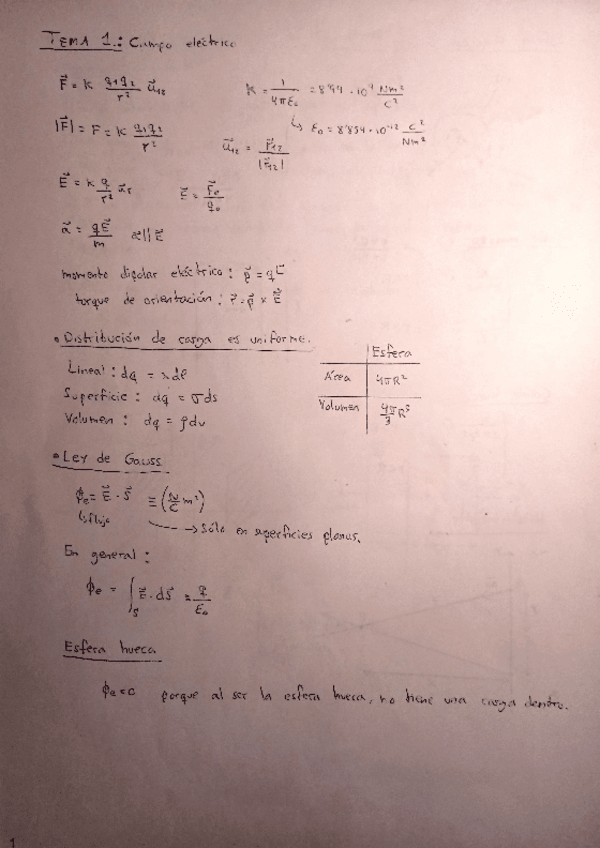 TEMA 1.: Campo eléctrico
F⃗ = K q₁q₂/r² u⃗₁₂
K = 1/4πε₀ = 8'99 · 10⁹ Nm²/C²
|F⃗| = F = K q₁q₂/r²
↳ ε₀ = 8'854 · 10⁻¹² C²/Nm²
u⃗₁₂ = r⃗₁₂/|r⃗₁₂|
E⃗ = K q/r² u⃗r
E⃗ = F⃗e/q₀
a⃗ = qE⃗/m a||E⃗
momento dipolar eléctrico: p⃗ = qL⃗
torque de orientación: τ⃗ = p⃗ × E⃗
• Distribución de carga es uniforme.
Lineal: dq = λdl
Superficie: dq = σds
Volumen: dq = ρdv
Esfera
Área 4πR²
Volumen 4π/3 R³
• Ley de Gauss
ϕe = E⃗ · S⃗ ≡ (N/C m²)
↳ flujo
→ Sólo en superficies planas.
En general:
ϕe = ∫s E⃗ · dS⃗ = q/ε₀
Esfera hueca
ϕe = 0 porque al ser la esfera hueca, no tiene una carga dentro.
1